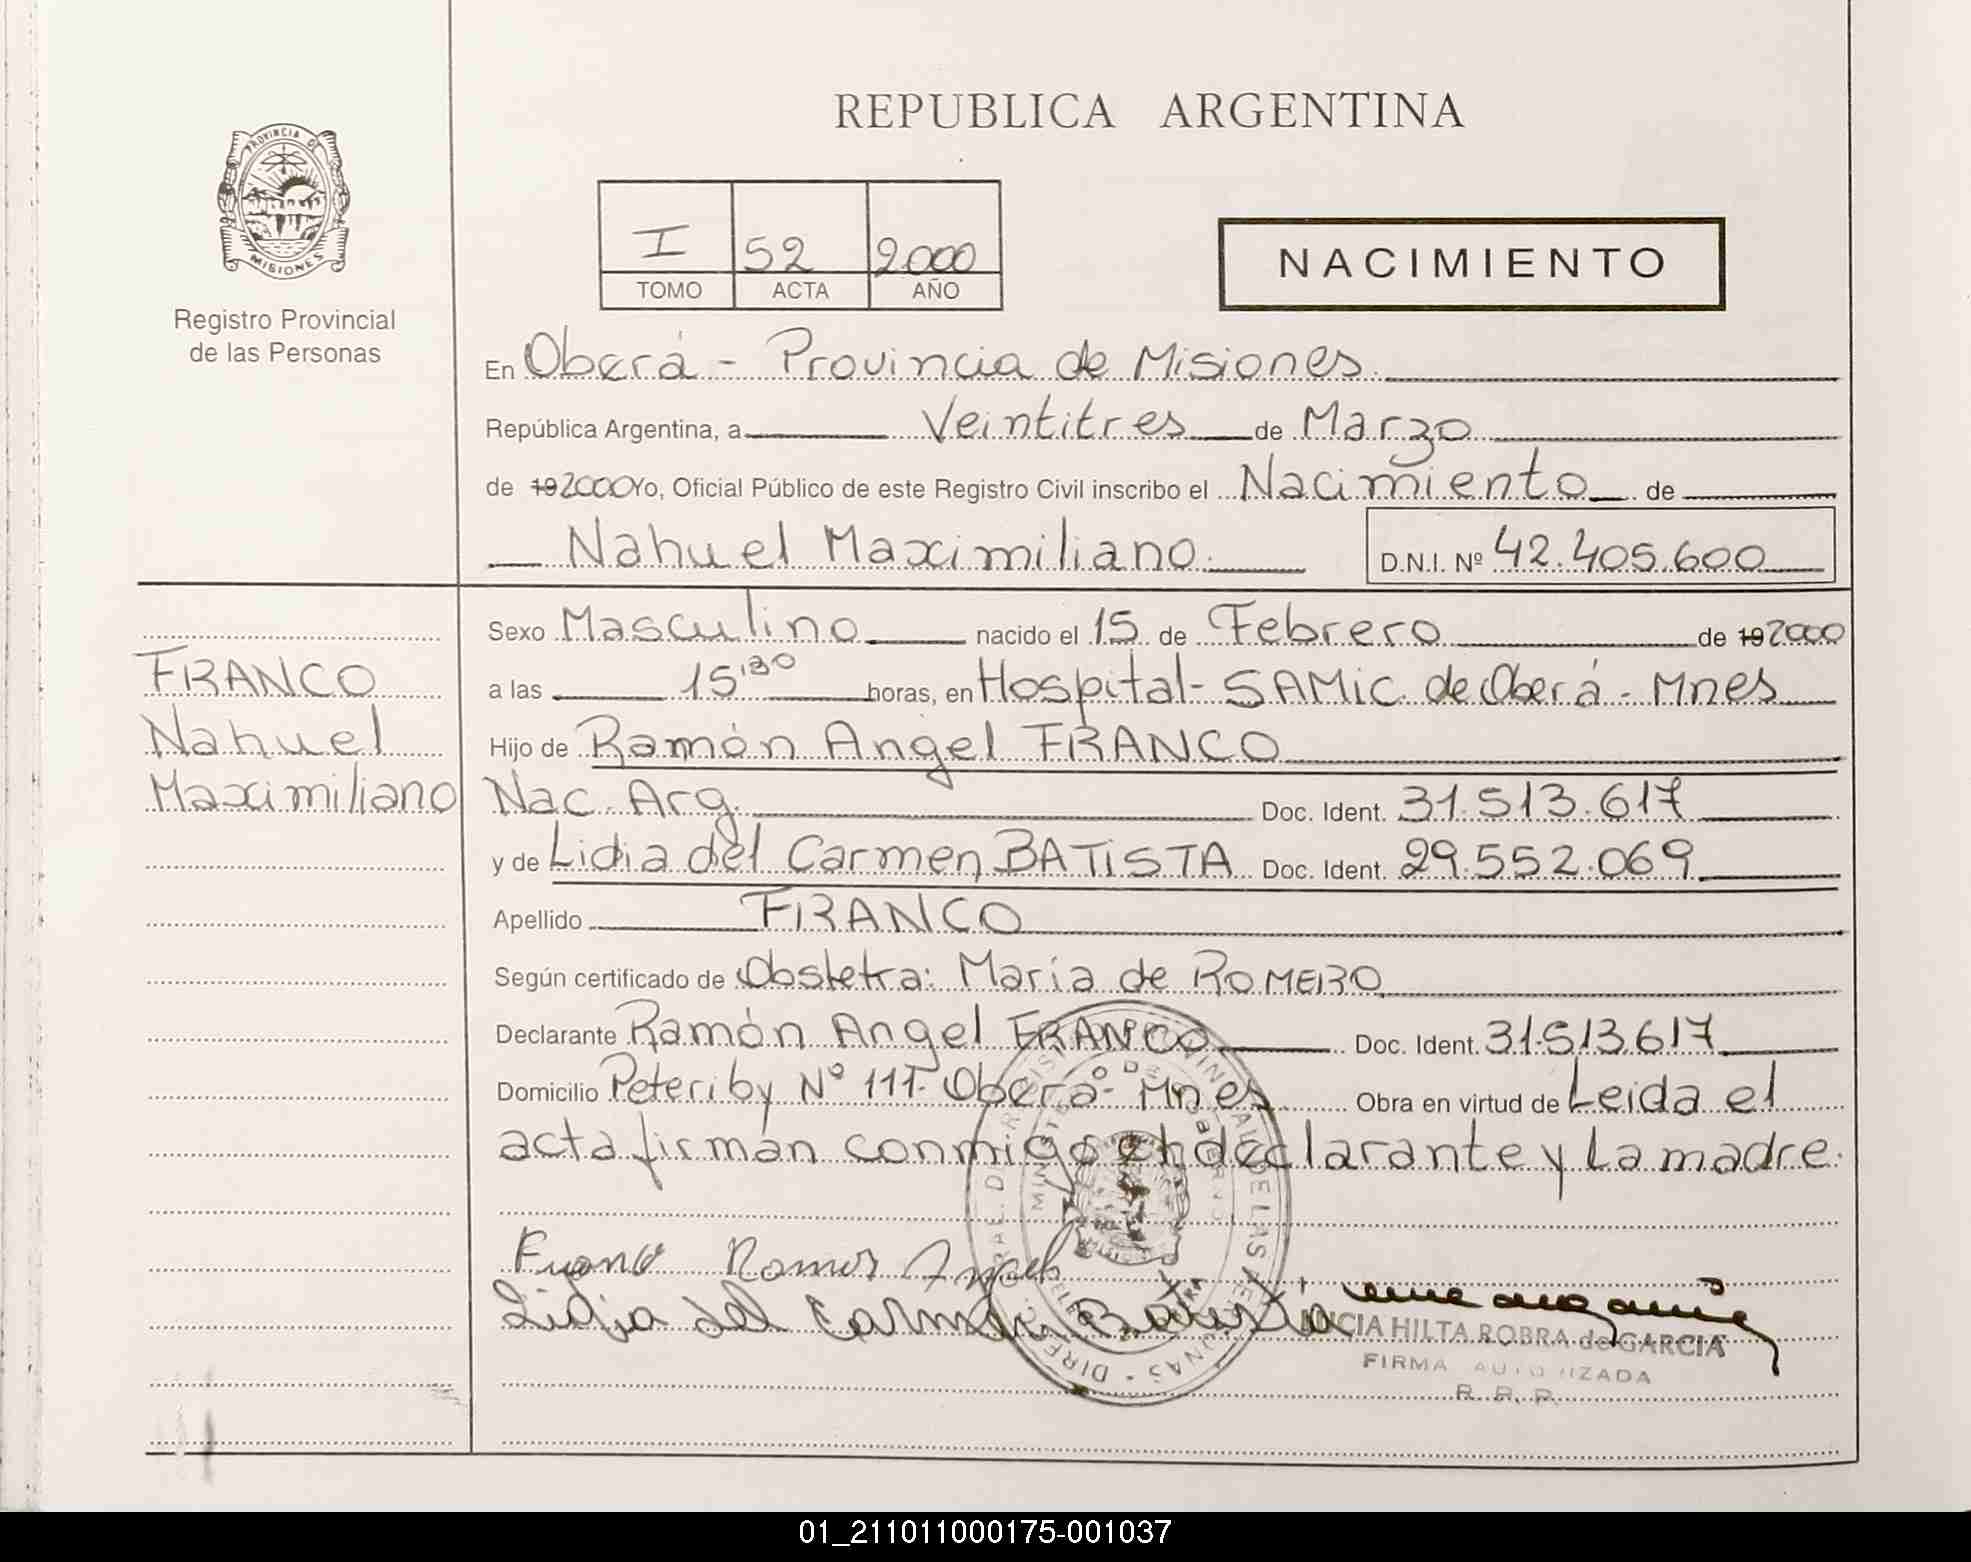 REPUBLICA ARGENTINA
PROVINCIA DE
MISIONES
Registro Provincial
de las Personas
I 52 2000
TOMO ACTA AÑO
NACIMIENTO
En Oberá - Provincia de Misiones.
República Argentina, a Veintitres de Marzo
de 19 2000 Yo, Oficial Público de este Registro Civil inscribo el Nacimiento de
Nahuel Maximiliano. D.N.I. Nº 42.405.600
Sexo Masculino nacido el 15 de Febrero de 19 2000
FRANCO
Nahuel
Maximiliano
a las 15'30 horas, en Hospital - SAMIC de Oberá - Mnes
Hijo de Ramón Angel FRANCO
Nac. Arg. Doc. Ident. 31.513.617
y de Lidia del Carmen BATISTA Doc. Ident. 29.552.069
Apellido FRANCO
Según certificado de Obstetra: María de ROMERO
Declarante Ramón Angel FRANCO Doc. Ident. 31.513.617
Domicilio Peteriby Nº 111. Oberá - Mnes Obra en virtud de Leida el
acta firmán conmigo el declarante y La madre.
Lidia del Carmen Batista
HILTA ROBRA de GARCIA
FIRMA AUTORIZADA
R. P. P.
01_211011000175-001037